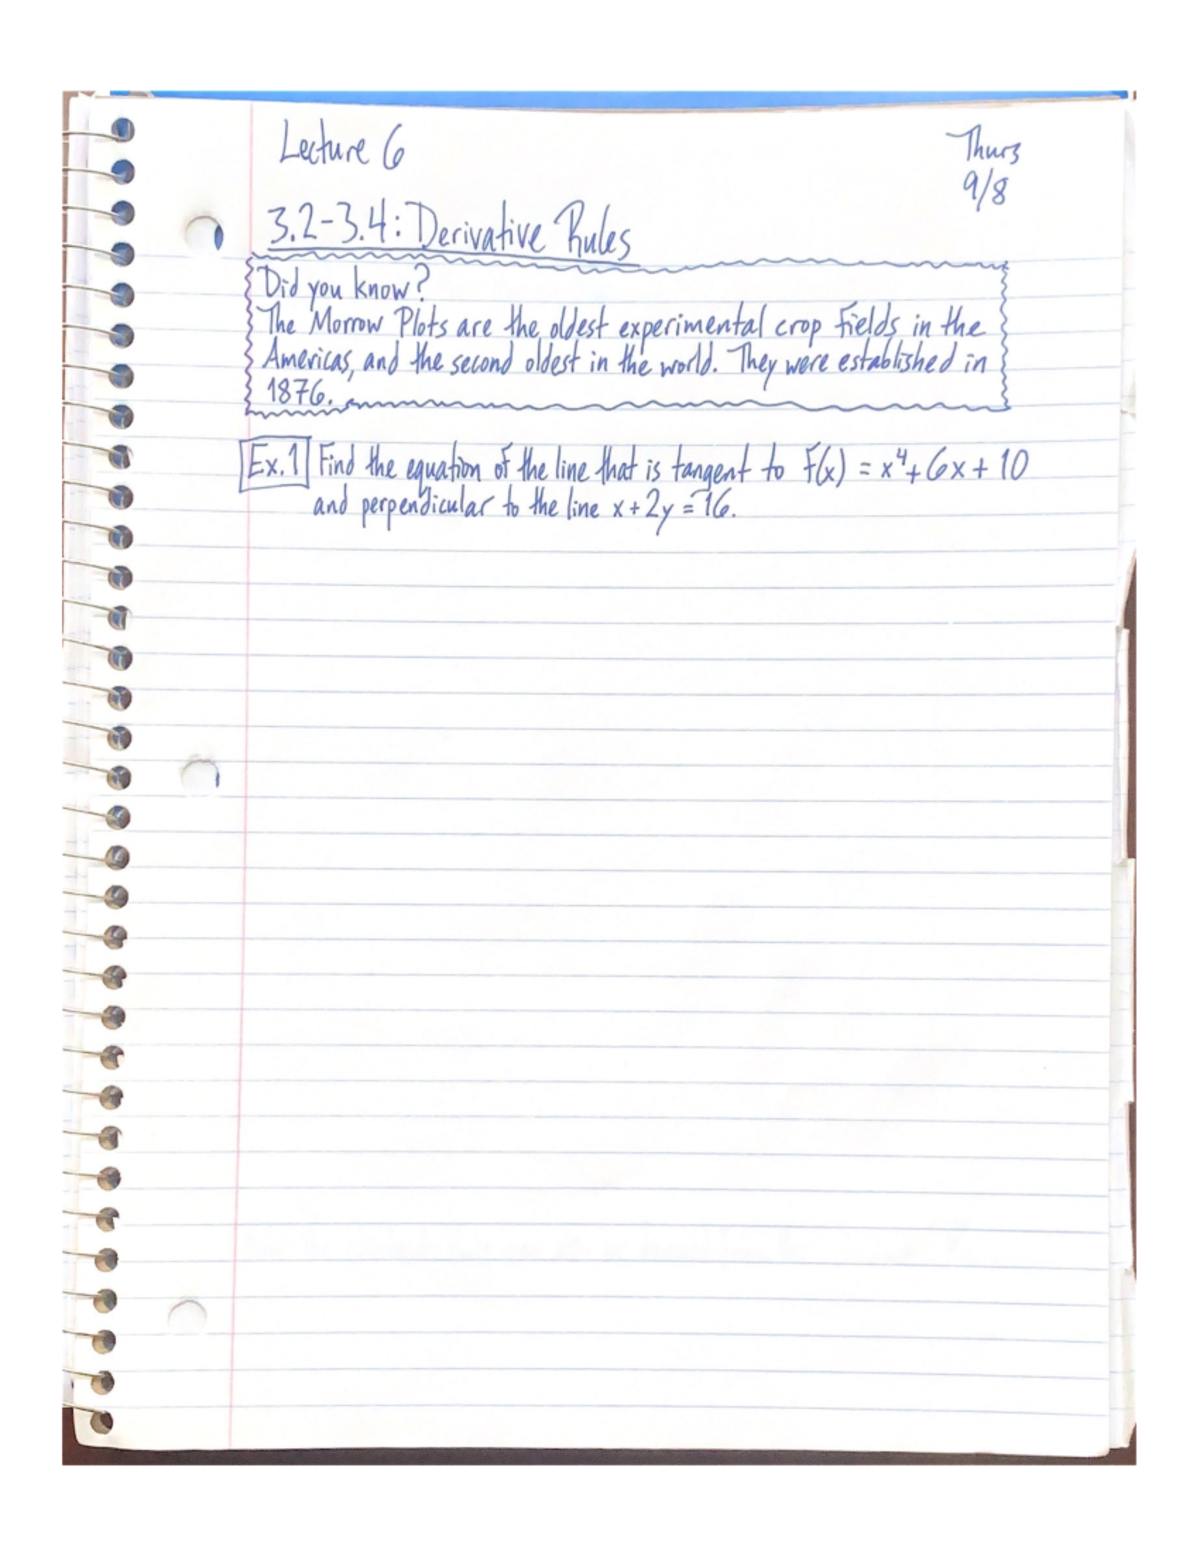 Lecture 6
Thurs
9/8
3.2-3.4: Derivative Rules
Did you know?
The Morrow Plots are the oldest experimental crop fields in the
Americas, and the second oldest in the world. They were established in
1876.
Ex.1 Find the equation of the line that is tangent to f(x) = x⁴+6x+10
and perpendicular to the line x+2y=16.